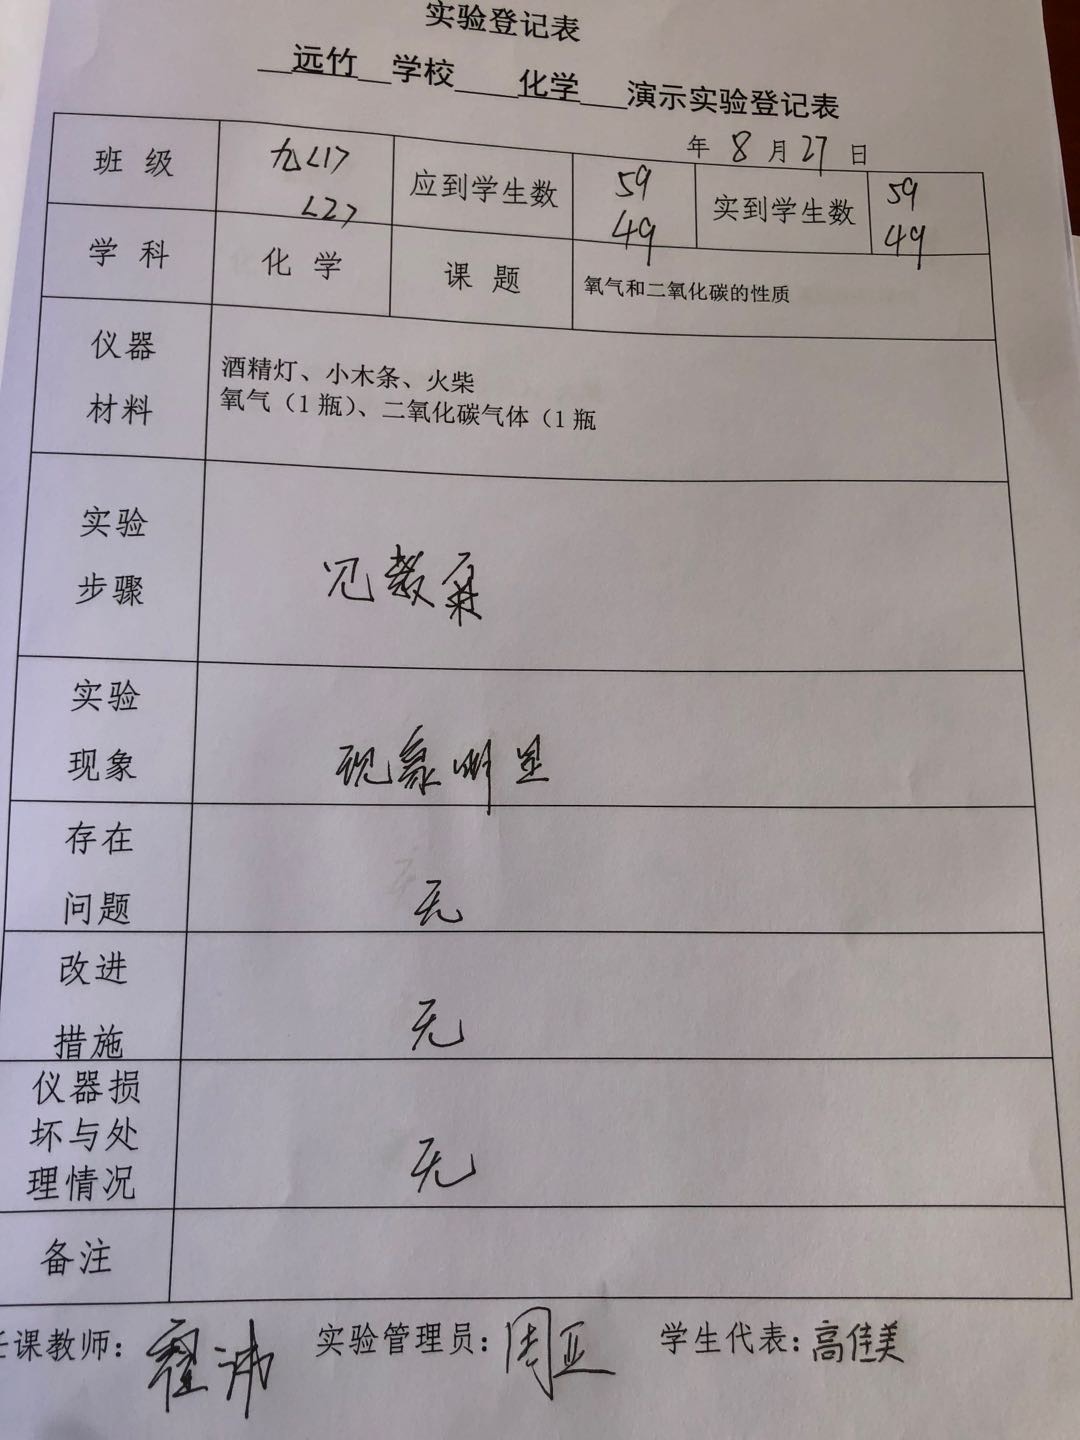 实验登记表
远竹 学校 化学 演示实验登记表
年 8 月 27 日
班 级 九<1> <2> 应到学生数 59 49 实到学生数 59 49
学 科 化 学 课 题 氧气和二氧化碳的性质
仪器
材料
酒精灯、小木条、火柴
氧气（1 瓶）、二氧化碳气体（1 瓶
实验
步骤
见教案
实验
现象
现象明显
存在
问题
无
改进
措施
无
仪器损
坏与处
理情况
无
备注
课教师： 霍 实验管理员：周亚 学生代表：高佳美